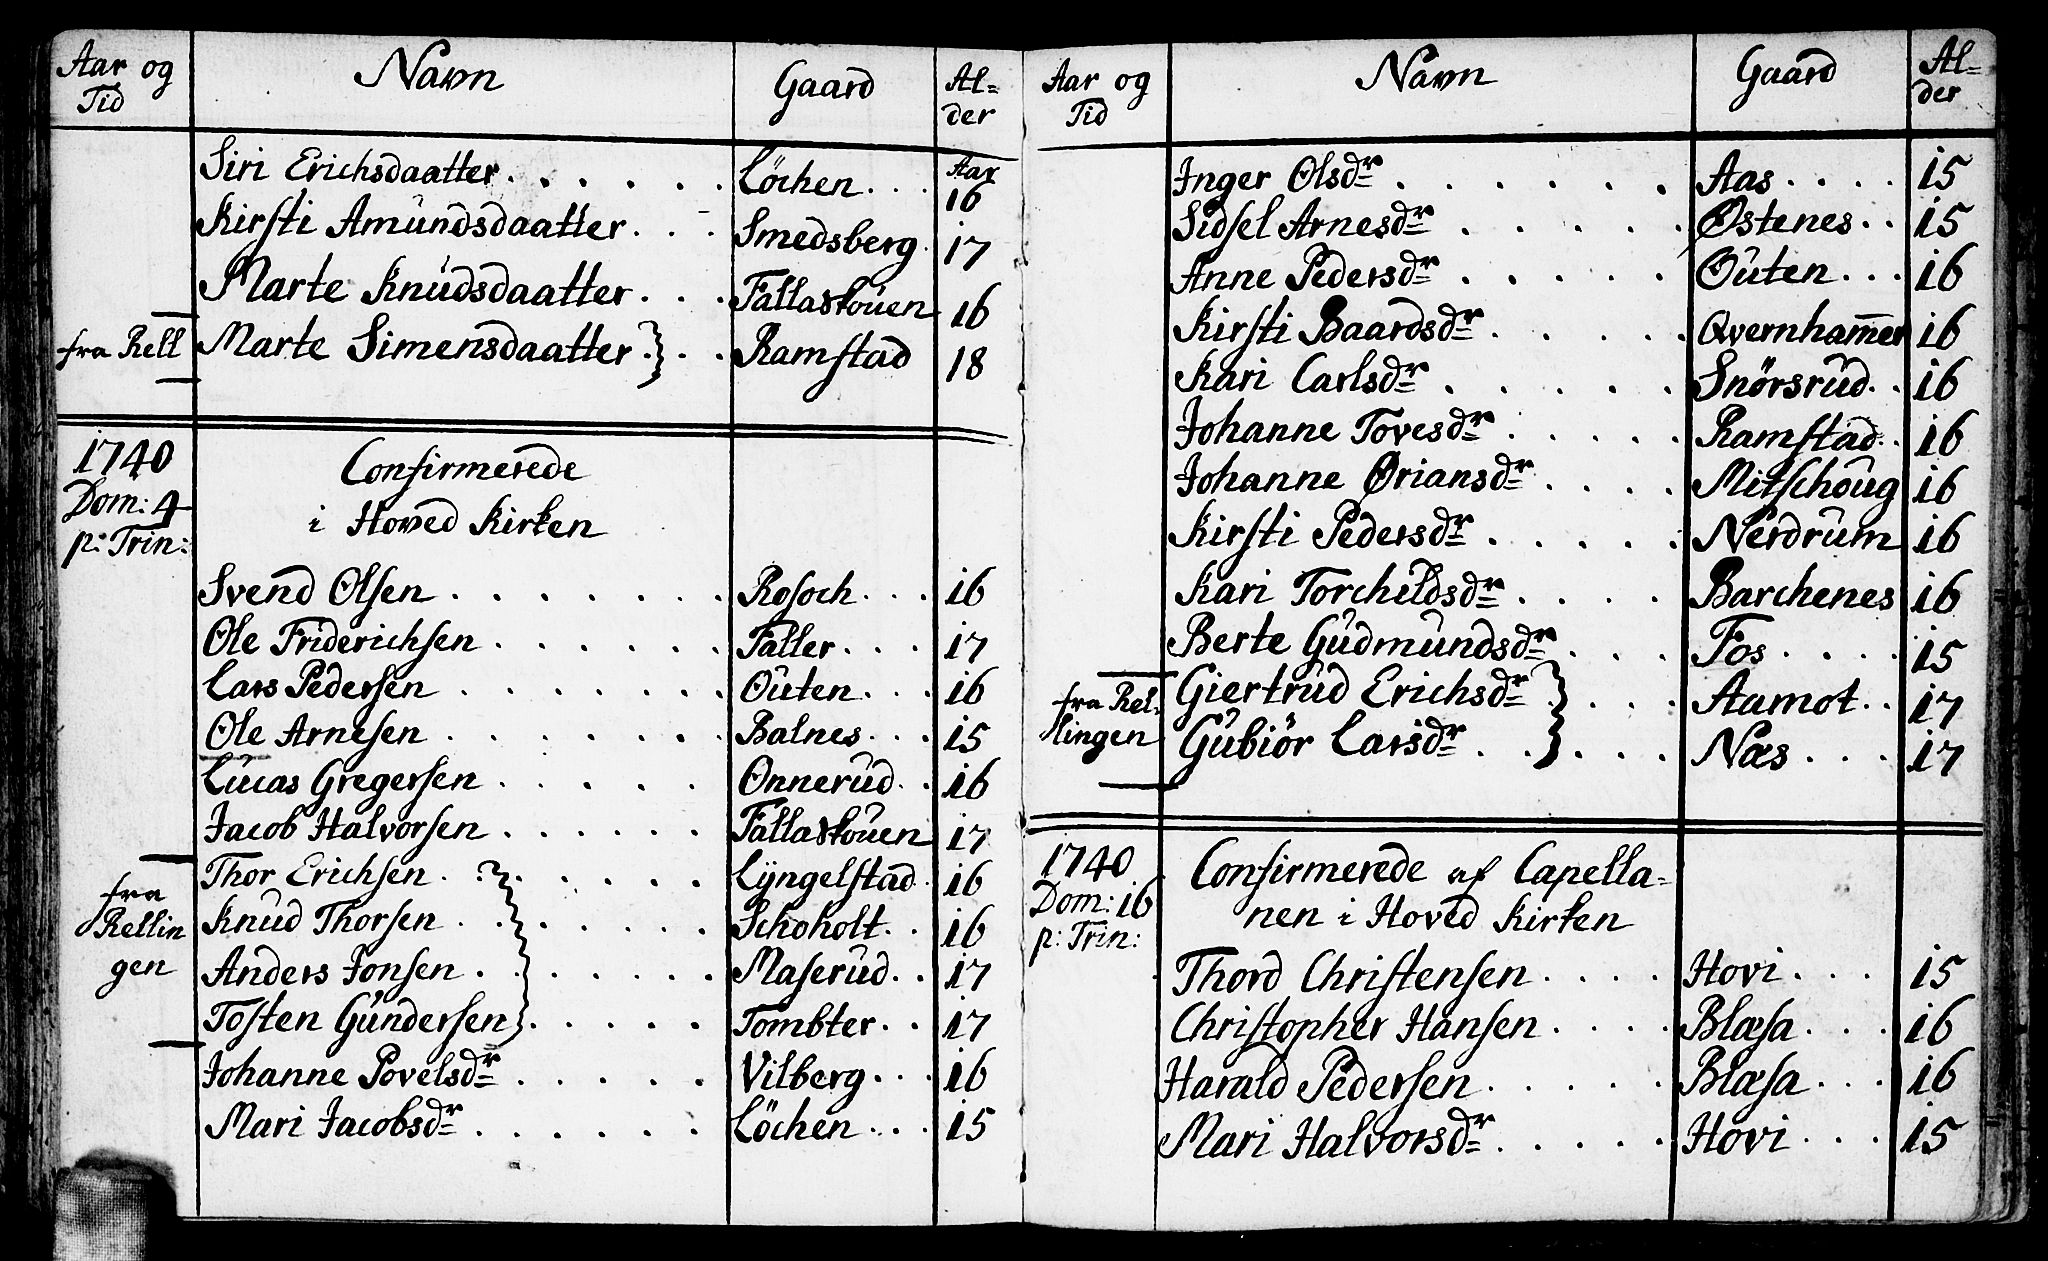 Aar og Tid Navn Gaard Al=der
Siri Erichsdaatter. . . . . . Löchen. . . Aar 16
Kirsti Amundsdaatter. . . Smedsberg. 17
Marte Knudsdaatter. . . Fallaskouen 16
fra Rell Marte Simensdaatter. . . Ramstad 18
1740 Confirmerede
Dom: 4 i Hoved Kirken
p: Trin:
Svend Olsen. . . . . . . Rosoch. . . 16
Ole Friderichsen. . . . . . Faller. . . 17
Lars Pedersen. . . . . . Outen. . . 16
Ole Arnesen. . . . . . . Balnes. . . 15
Lucas Gregersen. . . . . Onnerud. . 16
Jacob Halvorsen. . . . . Fallaskouen 17
Thor Erichsen. . . . . . . Lÿngelstad. 16
fra Knud Thorsen. . . . . . . Schoholt. . 16
Rellin
gen Anders Jonsen. . . . . . Maserud. . 17
Tosten Gundersen. . . . . Tombter. . 17
Johanne Povelsdr. . . . . Vilberg. . . 16
Mari Jacobsdr. . . . . . Löchen. . . 15
Aar og Tid Navn Gaard Al=der
Inger Olsdr. . . . . . . Aas. . . . 15
Sidsel Arnesdr. . . . . Østenes. . 15
Anne Pedersdr. . . . . Outen. . . 16
Kirsti Baardsdr. . . . . Qvernham̄er 16
Kari Carlsdr. . . . . . Snörsrud. . 16
Johanne Tovesdr. . . . . Ramstad. . 16
Johanne Øriansdr. . . . Mitschoug 16
Kirsti Pedersdr. . . . . Nerdrum 16
Kari Torchildsdr. . . . Barchenes 16
Berte Gudmundsdr. . . Fos. . . . 15
fra Rel- Giertrud Erichsdr. . . . Aamot. . 17
lingen Gubiör Larsdr. . . . . Næs. . . 17
1740 Confirmerede af Capella=
Dom: 16 nen i Hoved Kirken
p: Trin:
Thord Christensen. . . . Hovi. . . 15
Christopher Hansen. . . . Blæsa. . . 16
Harald Pedersen. . . . . Blæsa. . . 16
Mari Halvorsdr. . . . . Hovi. . . 15